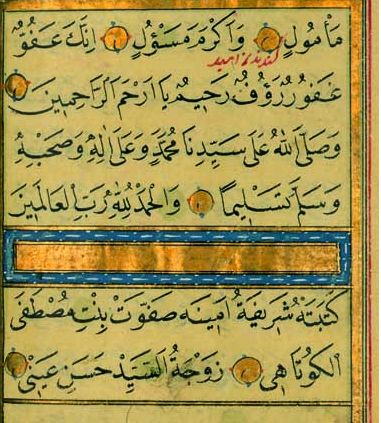 مَأْمُولٍ وَاَكْرَمَ مَسْؤُلٍ اِنَّكَ عَفُوٌّ
غَفُورٌ رَؤُفٌ رَحِيمٌ يَا اَرْحَمَ الرَّاحِمِينَ
وَصَلَّى اللّٰهُ عَلٰى سَيِّدِنَا مُحَمَّدٍ وَعَلٰى اٰلِهٖ وَصَحْبِهٖ
وَسَلَّمَ تَسْلِيمًا وَالْحَمْدُ لِلّٰهِ رَبِّ الْعَالَمِينَ
كَتَبَتْهُ شَرِيفَةُ اَمِينَه صَفْوَتْ بِنْتِ مُصْطَفَى
الكُوتَاهِي زَوْجَةُ السَّيِّدْ حَسَنِ عَيْنِي